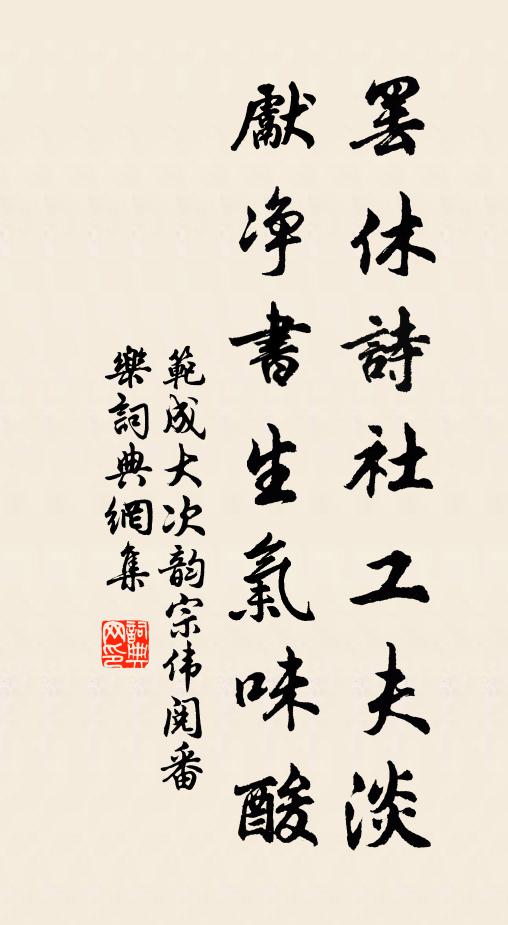 罢休詩社工夫淡
獻净書生氣味酸
範成大次韵宗伟阅番
樂詞典網集
詞典
网印